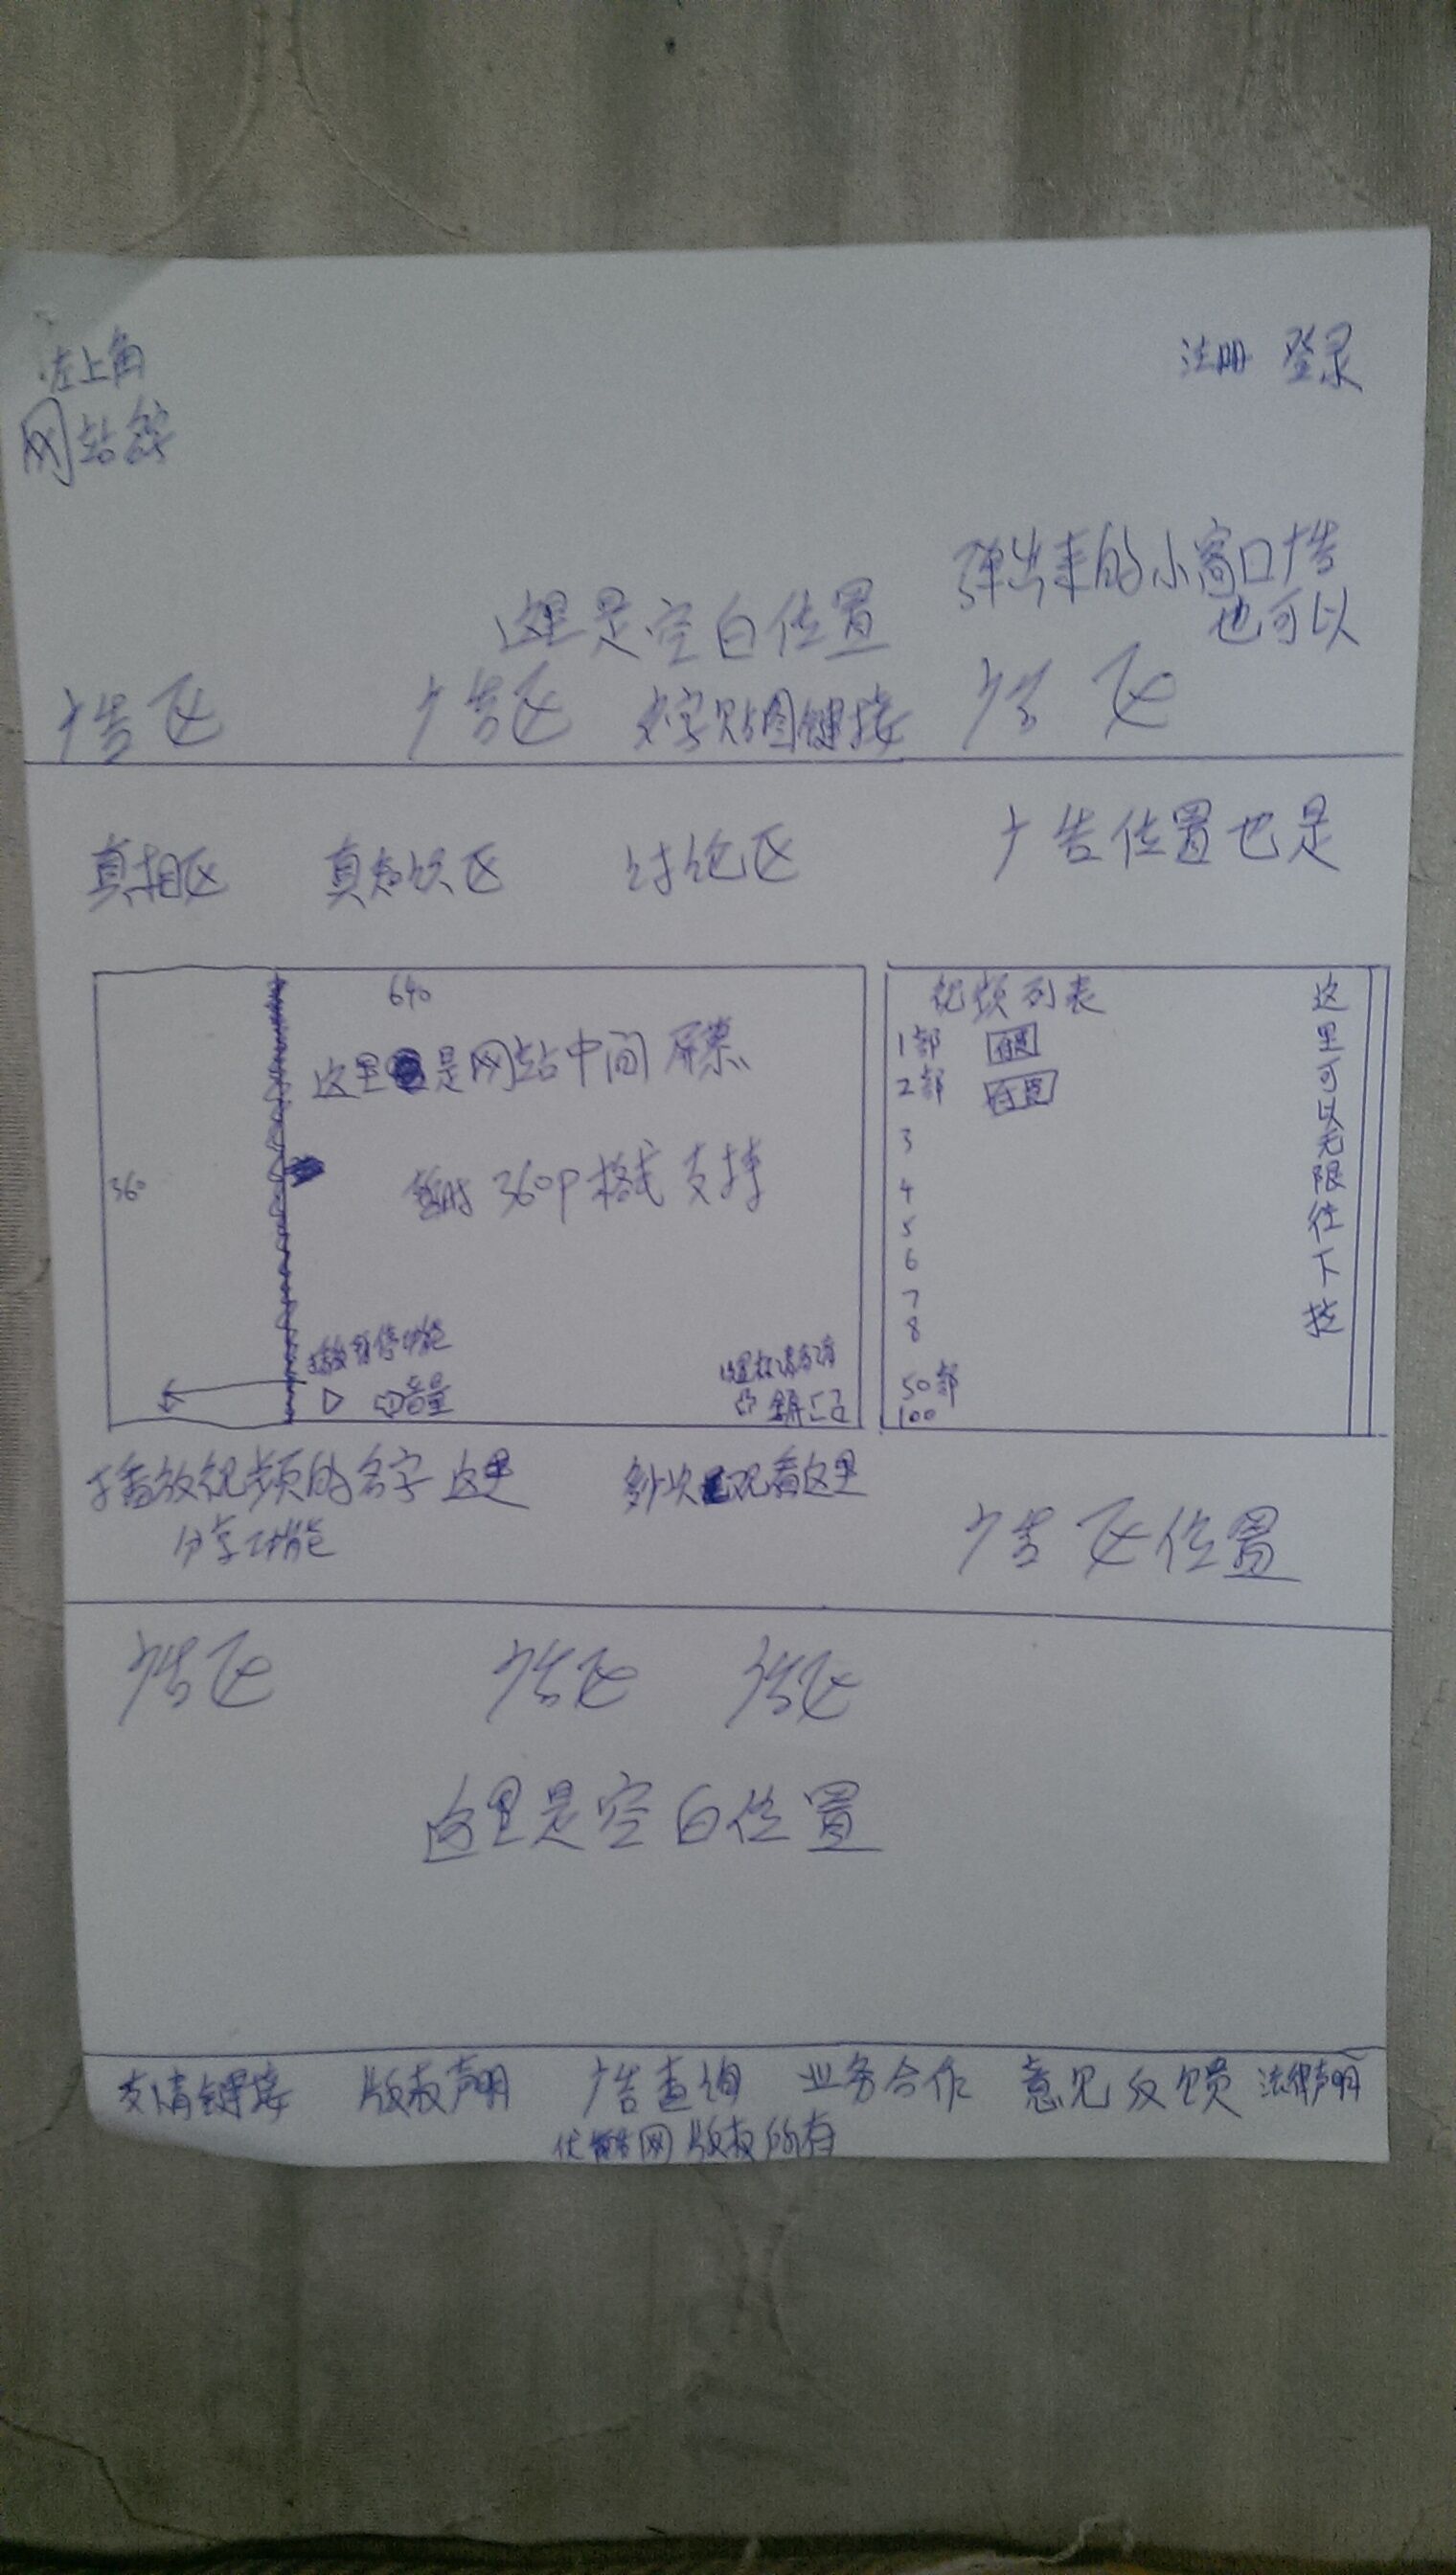 左上角
注册 登录
网站名字
弹出来的小窗口广告
也可以
这里是空白位置
广告区 广告区 文字贴图链接 广告区
真相区 真知识区 讨论区 广告位置也是
640
这里是网站中间屏幕
360
暂时360P格式支持
播放暂停功能
音量
视频列表
1部
2部
3
4
5
6
7
8
50部
100
这里可以无限往下拉
播放视频的名字这里 多少次观看这里
分享功能
广告区位置
广告区 广告区 广告区
这里是空白位置
友情链接 版权声明 广告查询 业务合作 意见反馈 法律声明
优酷网版权所有